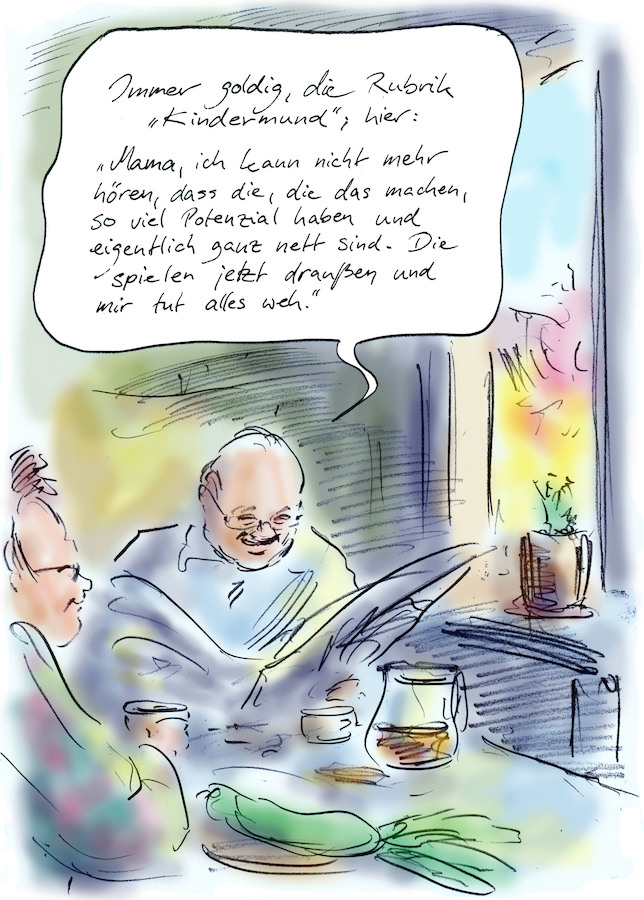 Immer goldig, die Rubrik
„Kindermund"; hier:
„Mama, ich kann nicht mehr
hören, dass die, die das machen,
so viel Potenzial haben und
eigentlich ganz nett sind. Die
spielen jetzt draußen und
mir tut alles weh."